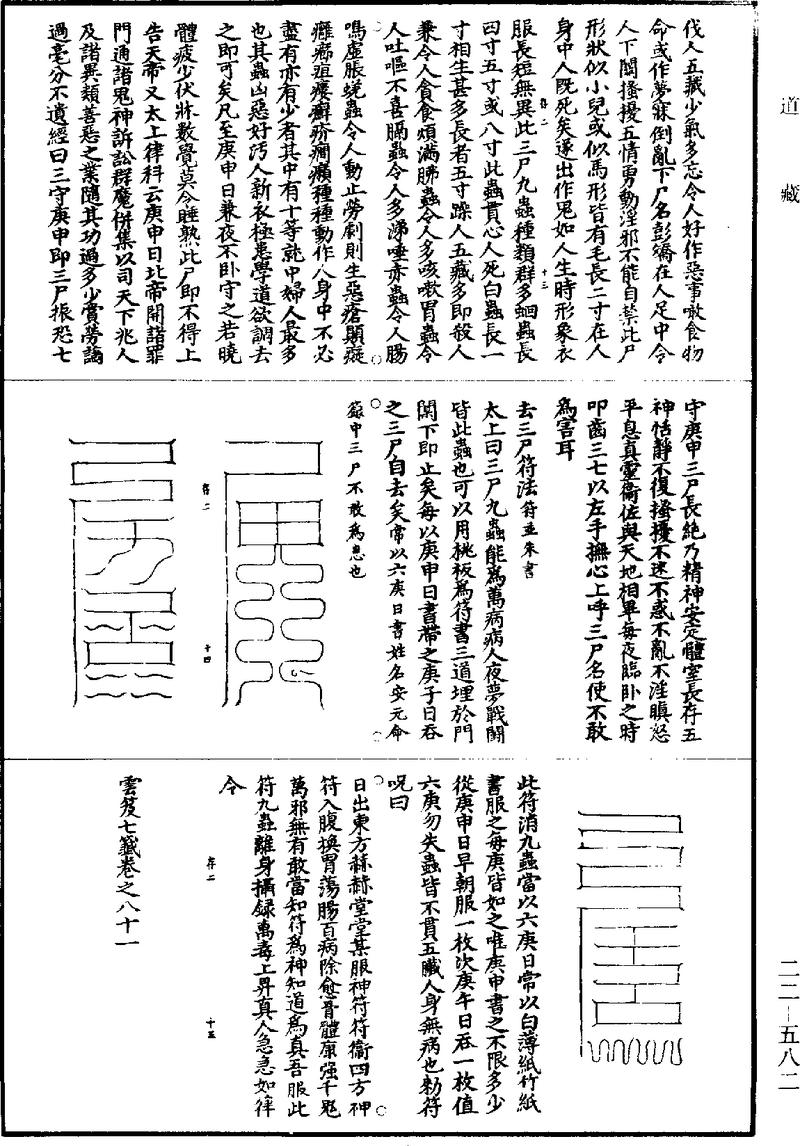 道藏
伐人五藏少氣多忘令人好作惡事噉食物
命或作夢寐倒亂下尸名彭矯在人足中令
人下關搔擾五情勇動淫邪不能自禁此尸
形狀似小兒或似馬形皆有毛長二寸在人
身中人既死矣遂出作鬼如人生時形象衣
存二
十三
服長短無異此三尸九蟲種類群多蛔蟲長
四寸五寸或八寸此蟲貫心人死白蟲長一
寸相生甚多長者五寸躁人五藏多即殺人
兼令人貪食煩滿肺蟲令人多咳嗽胃蟲令
人吐嘔不喜膈蟲令人多涕唾赤蟲令人腸
鳴虛脹蜣蟲令人動止勞劇則生惡瘡顛癡
癰癤疽瘻癬疥癎癩種種動作人身中不必
盡有亦有少者其中有十等就中婦人最多
也其蟲凶惡好污人新衣極患學道欲調去
之即可矣凡至庚申日兼夜不卧守之若曉
體疲少伏牀數覺莫令睡熟此尸即不得上
告天帝又太上律科云庚申日北帝開諸罪
門通諸鬼神訴訟群魔併集以司天下兆人
及諸異類善惡之業隨其功過多少賞勞謫
過毫分不遺經曰三守庚申即三尸振恐七
守庚申三尸長絶乃精神安定體室長存五
神恬靜不復搔擾不迷不惑不亂不淫瞋怒
平息真靈衞佐與天地相畢每夜臨卧之時
叩齒三七以左手撫心上呼三尸名使不敢
為害耳
去三尸符法符並朱書
太上曰三尸九蟲能為萬病病人夜夢戰鬭
皆此蟲也可以用桃板為符書三道埋於門
閫下即止矣每以庚申日書帶之庚子日吞
之三尸自去矣常以六庚日書姓名安元命
籙中三尸不敢為患也
存二
十四
此符消九蟲當以六庚日常以白薄紙竹紙
書服之每庚皆如之唯庚申書之不限多少
從庚申日早朝服一枚次庚午日吞一枚值
六庚勿失蟲皆不貫五臟人身無病也勑符
呪曰
日出東方赫赫堂堂某服神符符衞四方神
符入腹換胃蕩腸百病除愈骨體康强千鬼
萬邪無有敢當知符為神知道為真吾服此
符九蟲離身攝録萬毒上昇真人急急如律
令
存二
十五
雲笈七籤卷之八十一
二二—五八二